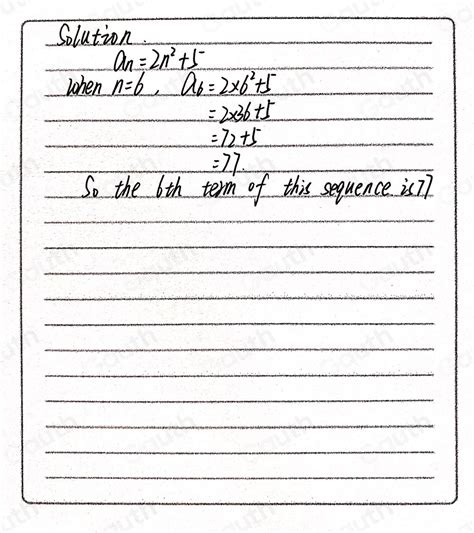 Solution.
an=2n²+5
when n=6, a6=2×6²+5
=2×36+5
=72+5
=77.
So the 6th term of this sequence is 77